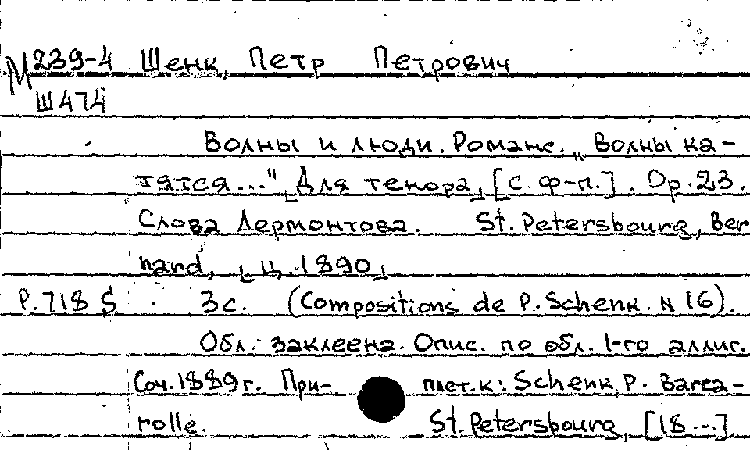 М 239-4 Шенк, Петр Петрович
Ш474
Волны и люди. Романс. „Волны ка-
тятся..." Для тенора, [с ф-п.]. Ор. 23.
Слова Лермонтова. St. Petersbourg, Ber
nard, ц. 1890
Р.718 § 3с. (Compositions de P. Schenk. N 16).
Обл. заклеена. Опис. по обл. 1-го аллиг.
Соч. 1889 г. При- плет. к: Schenk, P. Barca-
rolle. St. Petersbourg, [18--]